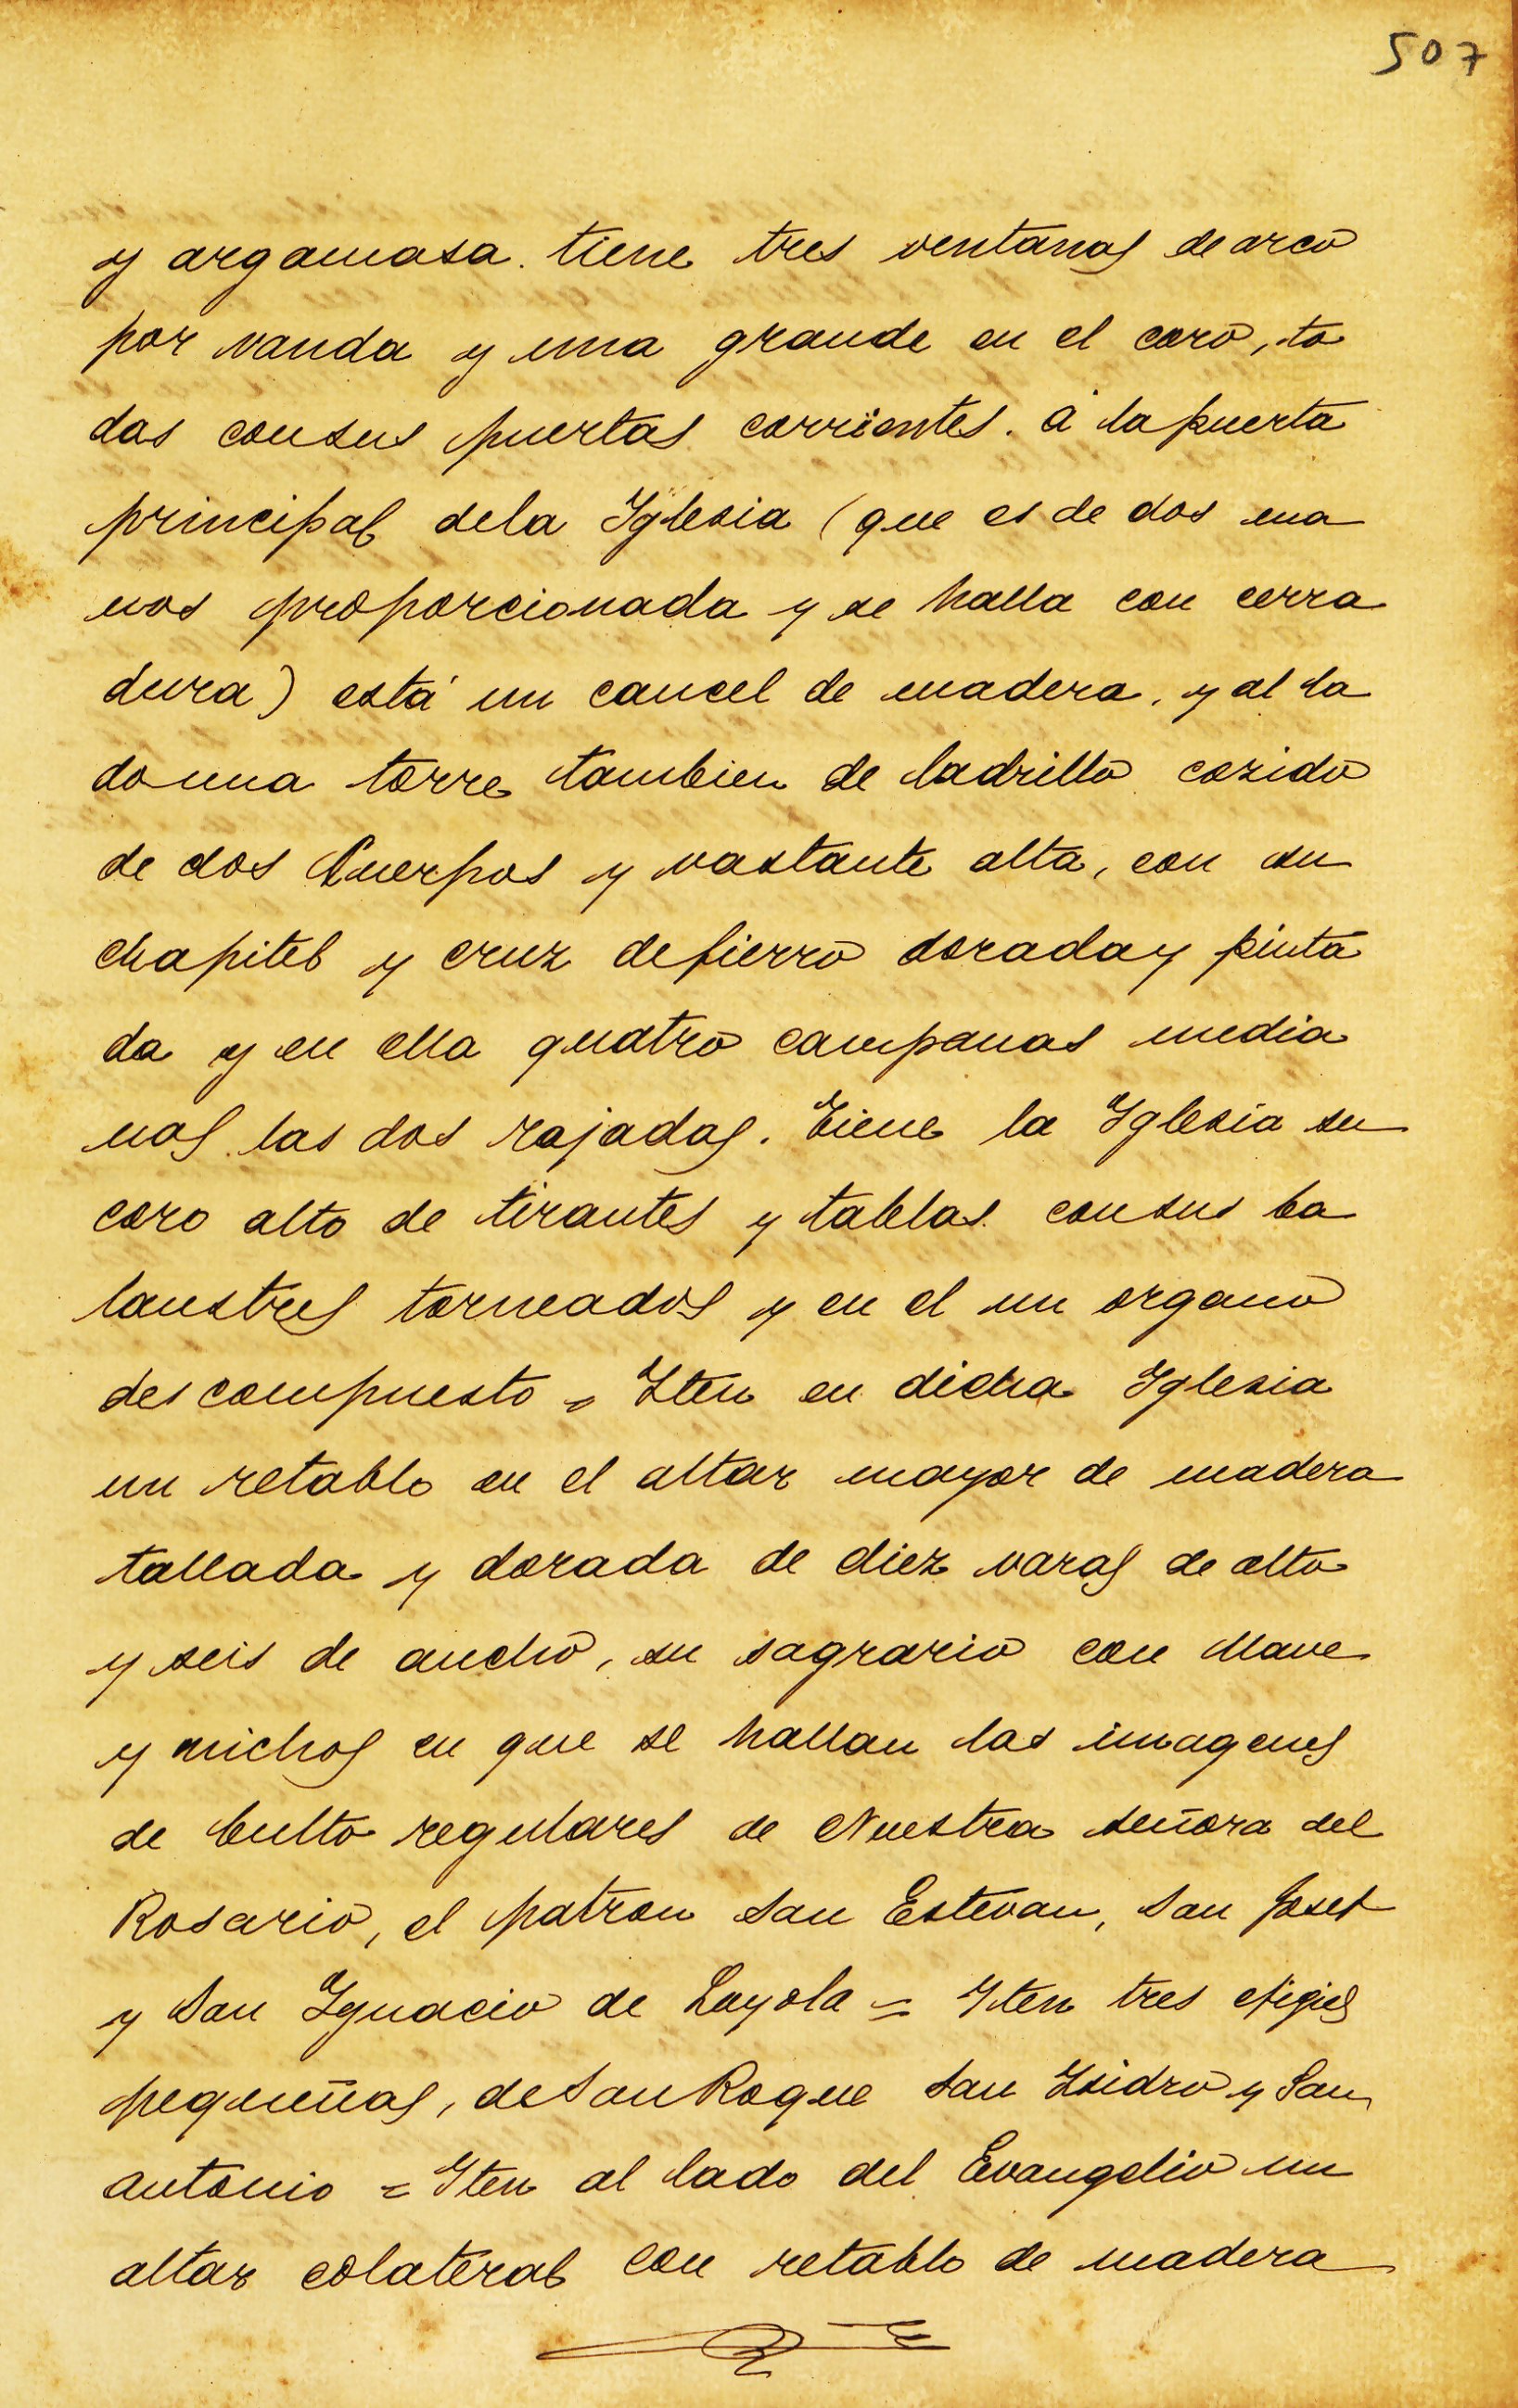 507
y argamasa. tiene tres ventanas de arco
por vanda y una grande en el coro, to
das consus puertas corrientes. a la puerta
principal dela Yglesia (que es de dos ma
nos proporcionada y se halla con cerra
dura) está un cancel de madera, y al la
do una torre tambien de ladrillo cozido
de dos Cuerpos y vastante alta, con su
chapitel y cruz defierro dorada y pinta
da y en ella quatro campanas media
nas las dos rajadas. Tiene la Yglesia su
coro alto de tirantes y tablas consus ba
laustres torneados y en el un organo
des compuesto = Yten en dicha Yglesia
un retablo en el altar mayor de madera
tallada y dorada de diez varas de alto
y seis de ancho, su sagrario con llave
y nichos en que se hallan las imagenes
de bulto regulares de Nuestra señora del
Rosario, el patron San Estevan, San Josef
y San Ygnacio de Loyola = Yten tres efigies
pequeñas, de San Roque San Ysidro y San
antonio = Yten al lado del Evangelio un
altar colateral con retablo de madera